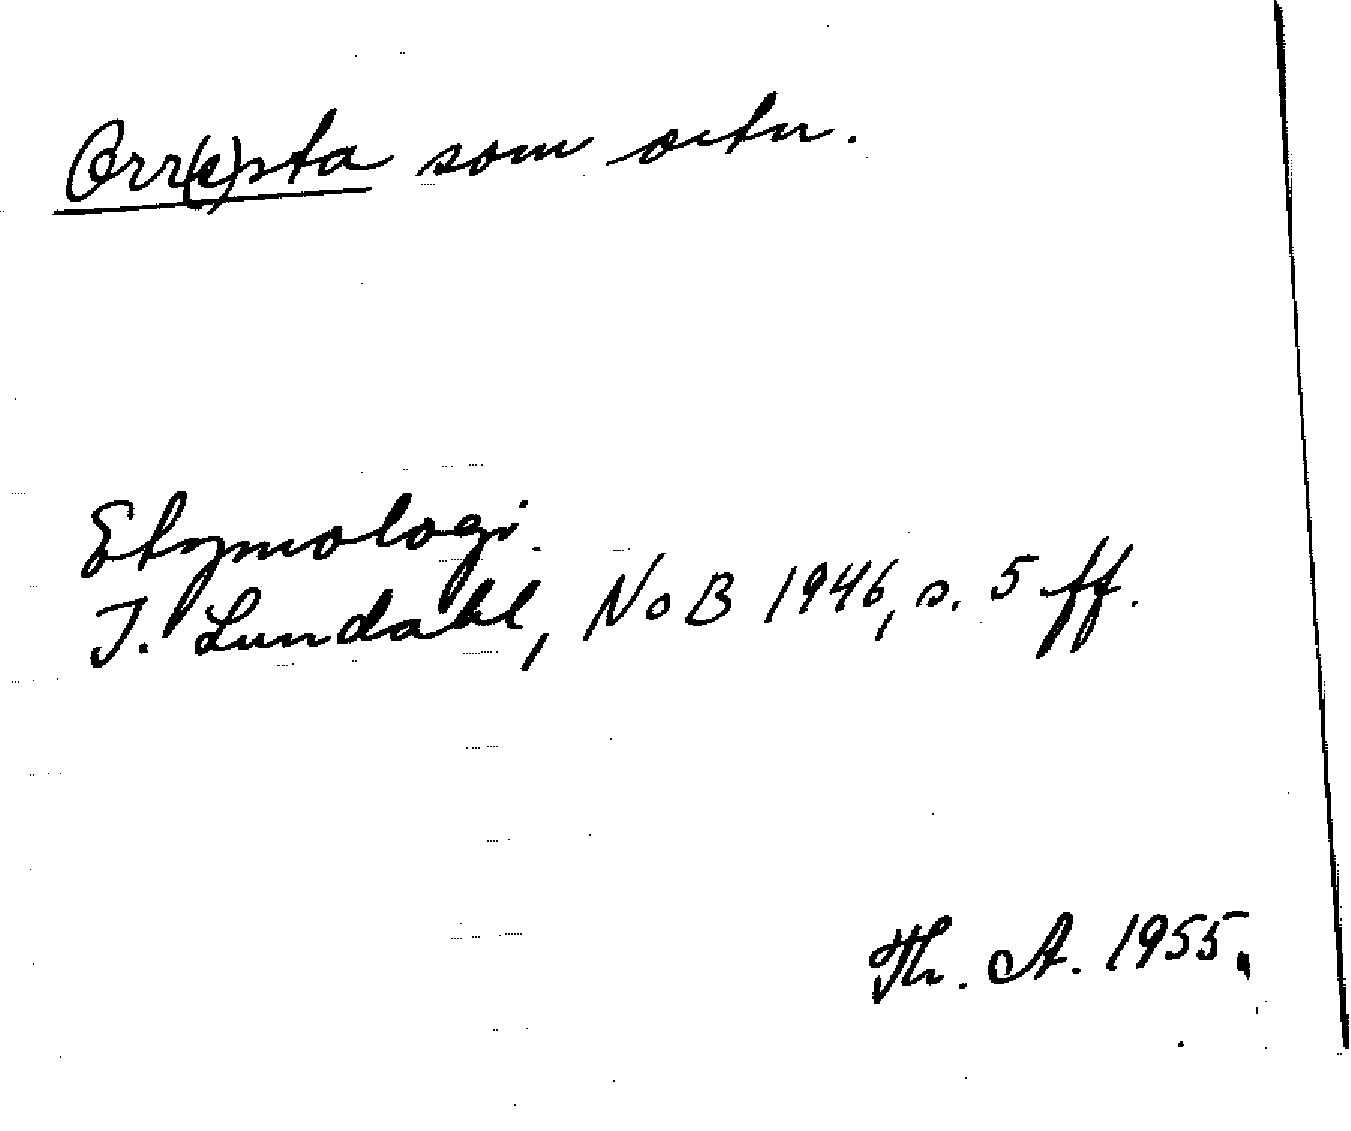 Orr(e)sta som ortn.
Etymologi.
I. Lundahl, NoB 1946, s. 5 ff.
Th. A. 1955.